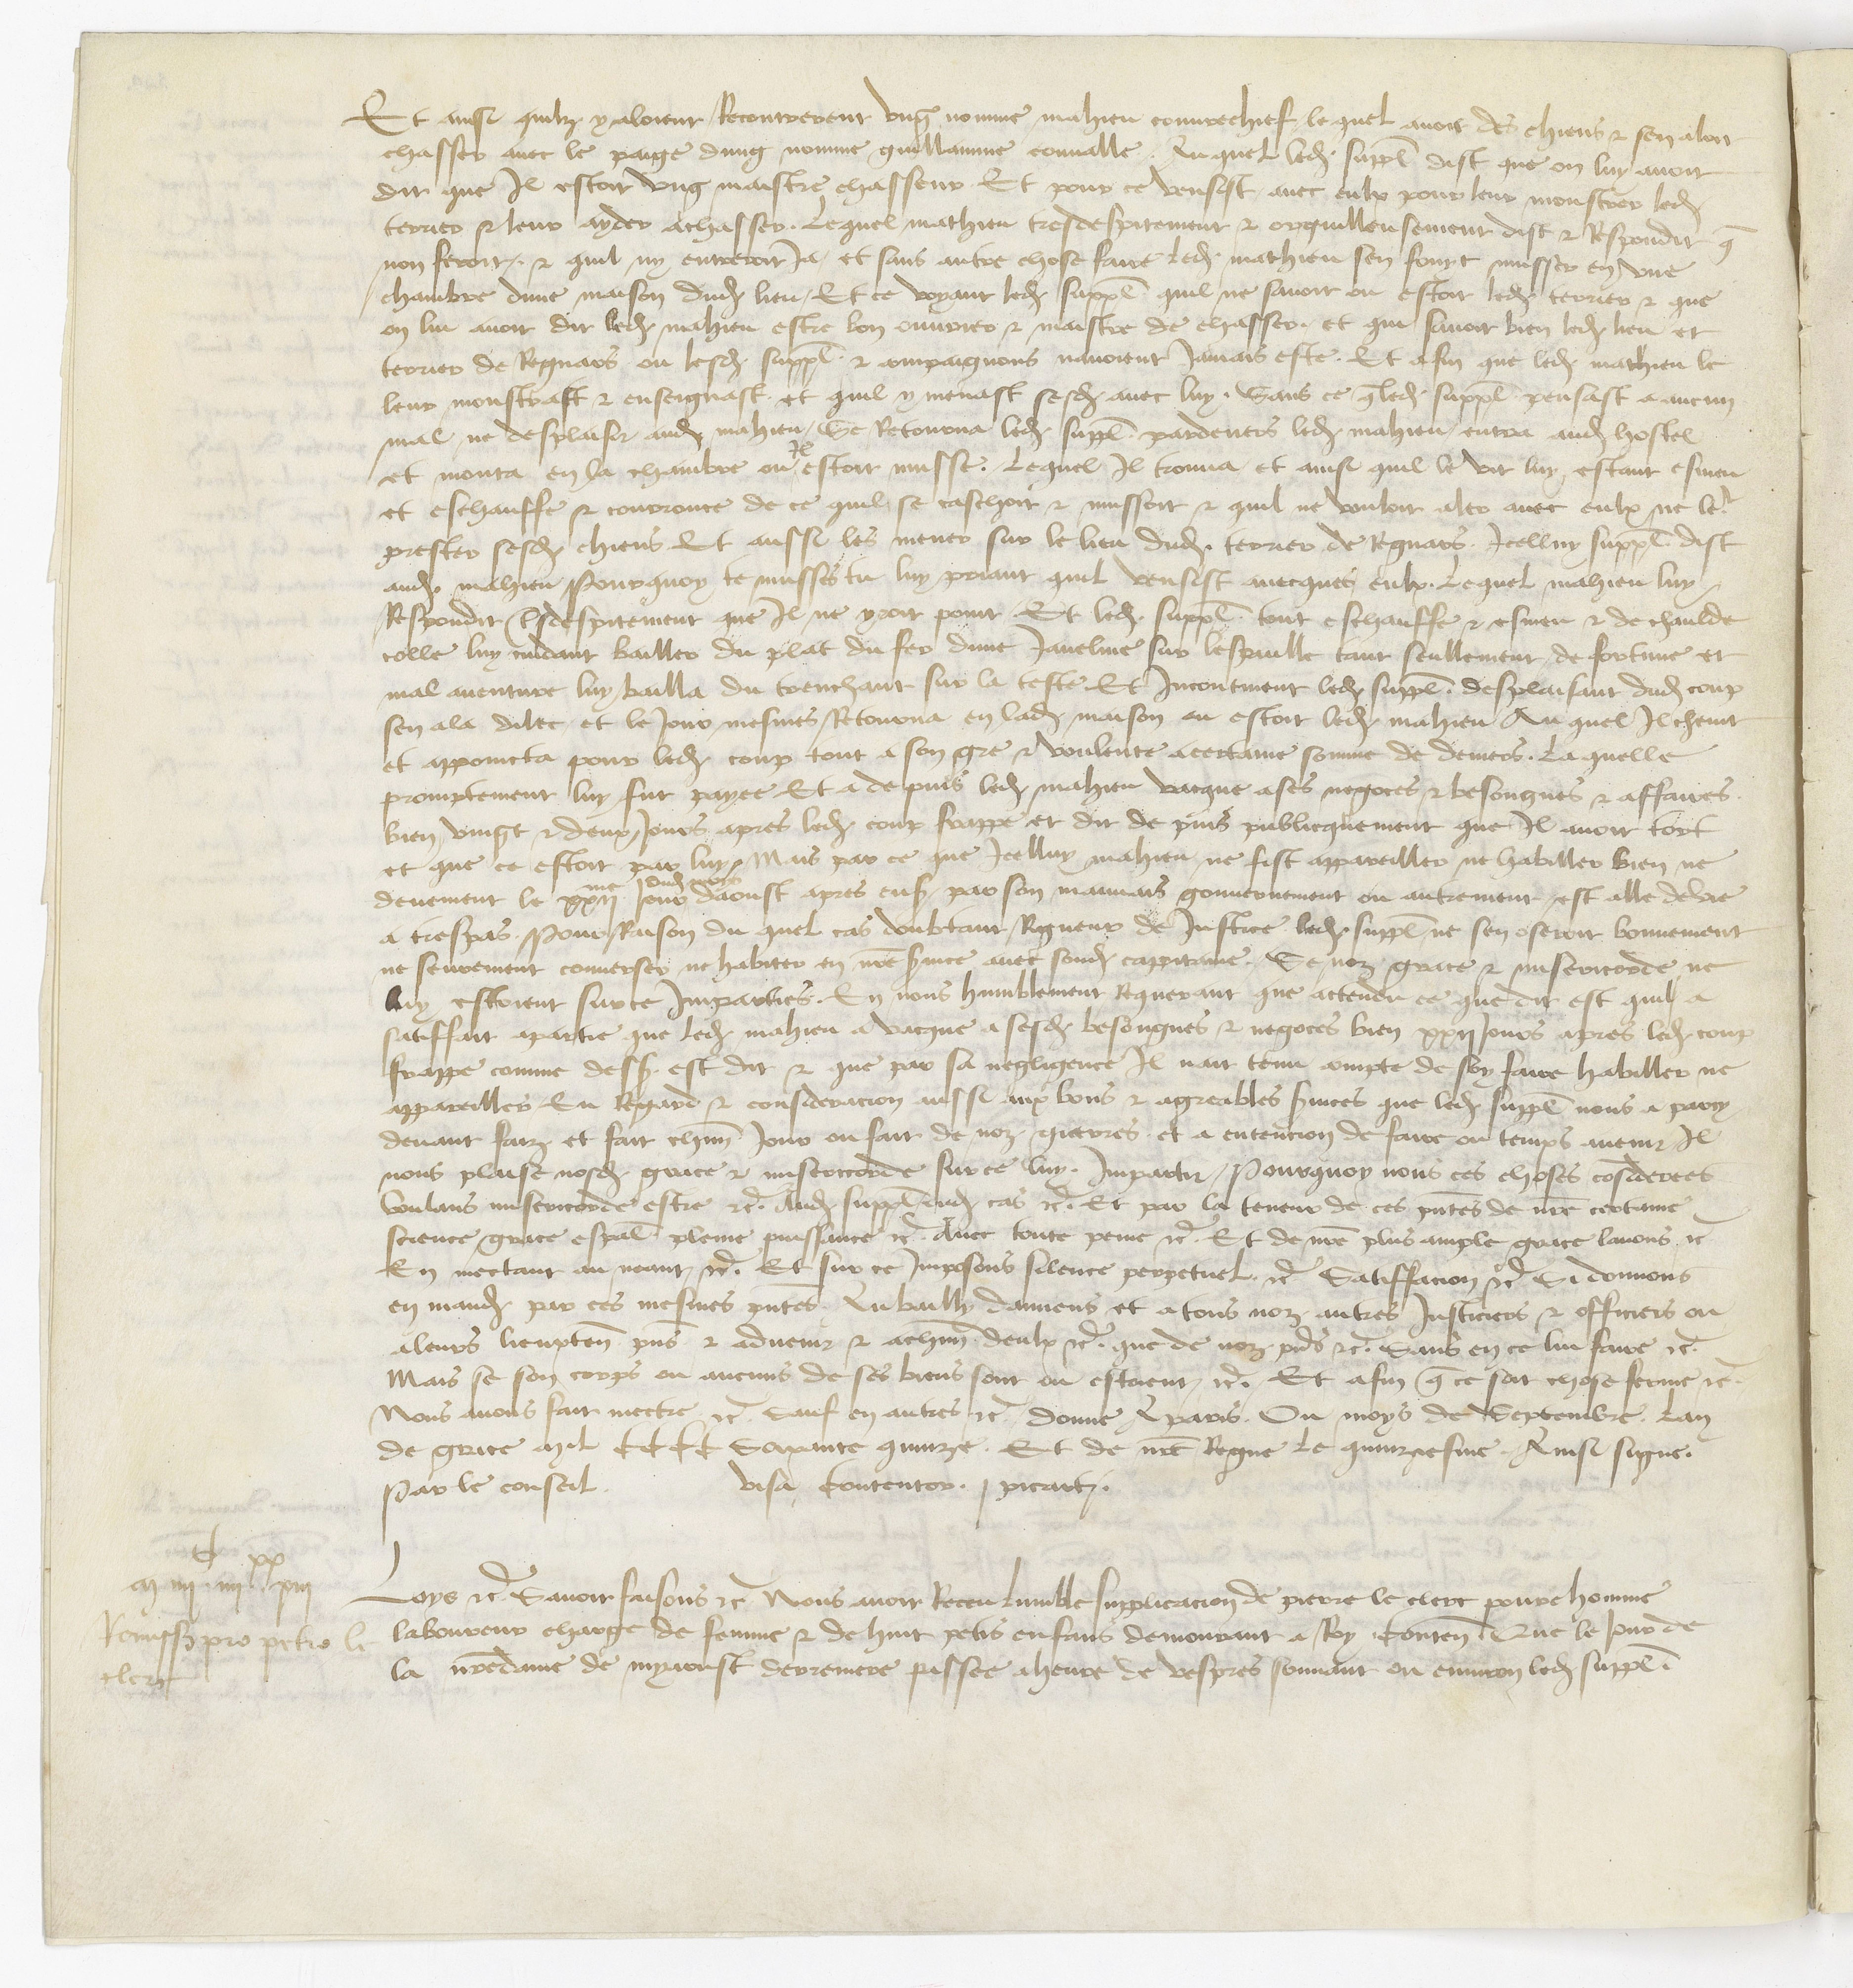 Et ainsi quilz y aloient Recontrerent ung nomme mahieu couvrechief lequel avoit des chiens & sen aloit
chasser avec le paige dung nomme guillaume Au quel led. suppl. dist que on luy avoit
dit que Il estoit ung maistre chasseur Et pour ce vensist avec eulx pour leur monstrer led.
terrier & leur ayder achasser. Lequel mathieu tresdespitement & orguilleusement dist & Respondit q̃
non feroit. & quil ny entreroit Ja et sans autre chose faire led. mathieu sen fouyt musser en une
chambre dune maison dud. lieu. Et ce voyant led. suppl. quil ne savoit ou estoit led. terrier & que
on lui avoit dit led. mahieu estre bon ouvrier & maistre de chasser. et qui savoit bien led. lieu et
terrier de Regnars ou lesd. suppl. & compaignons navoient Jamais este. Et afin que led. mathieu le
leur monstrast & enseignast et quil y menast sesd. avec luy. Sans ce q̃ led. suppl. pensast a aucun
mal ne desplaisir aud. mahieu Se Retourna led. suppl. pardevers led. mahieu entra aud. hostel
et monta en la chambre ou Il estoit musse. Lequel Il trouva et ainsi quil le vit luy estant esmeu
et eschauffe & courrouce de ce quil se caschoit & mussoit & quil ne vouloit aler avec eulx ne le.
prester sesd. chiens Et aussi les mener sur le lieu dud. terrier de Regnars. Icelluy suppl. dist
aud. mahieu Pourquoy te musses tu luy priant quil vensist avecques eulx. Lequel mahieu luy
Respondit despitement que Il ne yroit point. Et led. suppl. tout eschauffe & esmeu & de chaulde
colle luy cuidant bailler du plat du fer dune Javeline sur lespaulle tant seullement de fortune et
mal aventure luy bailla du trenchant sur la teste Et Incontinent led. suppl. desplaisant dud. coup
sen ala dilec et le Jour mesmes Retourna en lad. maison ou estoit led. mahieu Au quel Il chevit
et appoincta pour led. coup tout a son gre & voulente acertaine somme de deniers. La quelle
promptement luy fut payee Et a de puis led. mahieu vacque a ses negoces & besongnes & affaires
bien vingt & deux Jours apres led. coup frappe et dit de puis publicquement que Il avoit tort
et que ce estoit par luy Mais par ce que Icelluy mahieu ne fist appareiller ne habiller bien ne
deuement le xxii me Jour dud. moys daoust apres ens. par son mauvais gouvernement ou autrement est alle de vie
a trespas. Pour Raison du quel cas doubtant Rigueur de Justice led. suppl. ne sen oseroit bonnement
ne seurement converser ne habiter en nr̃e s̃vice avec sond. cappitaine. Se noz grace & misericorde ne
luy estoient sur ce Imparties. En nous humblement Requerant que actendu ce que dit est quil a
satiffait apartie que led. mahieu a vacque a sesd. besongnes & negoces bien xxii Jours apres led. coup
frappe comme dess. est dit & que par sa negligence Il nait tenu compte de soy faire habiller ne
appareiller En Regard & consideracion aussi aux bons & agreables s̃vices que led. suppl. nous a parcy
devant faiz et fait chũn Jour ou fait de noz guerres et a entencion de faire ou temps avenir Il
nous plaise nosd. grace & misericorde sur ce luy Impartir. Pourquoy nous ces choses cõsiderees
Voulans misericorde estre &c. Aud. suppl. oud. cas &c. Et par la teneur de ces pñtes de nr̃e certaine
science grace espãl pleine puissance &c. Avec toute peine &c. Et de nr̃e plus ample grace lavons &c
En mectant au neant &c. Et sur ce Imposons silence perpetuel. &c Satiffacion &c Si donnons
en mand. par ces mesmes pñtes. Au bailly damiens et a tous noz autres Justiciers & officiers ou
aleurs lieuxten. pñs & advenir & achũn deulx &c. que de noz pñs &c. Sans en ce lui faire &c.
Mais se son corps ou aucuns de ses biens sont ou estoient &c. Et afin q̃ ce soit chose ferme &c.
Nous avons fait mectre &c Sauf en autres &c donne A paris. Ou moys de Septembre. Lan
de grace mil CCCC Soixante quinze. Et de nr̃e Regne Le quinziesme. Ainsi signe.
Par le conseil. visa Contentor. J picart.
M iiii C iiii xx xiii
Remiss. pro petro le
clerc
Loys &c Savoir faisons &c Nous avoir Receu Lumble supplicacion de pierre le clerc povre homme
laboureur charge de femme & de huit petis enfans demourant a Roy Conten. Que le Jour de
la nr̃edame de myaoust derreniere passee a heure de vespres sonnant ou environ led. suppl.